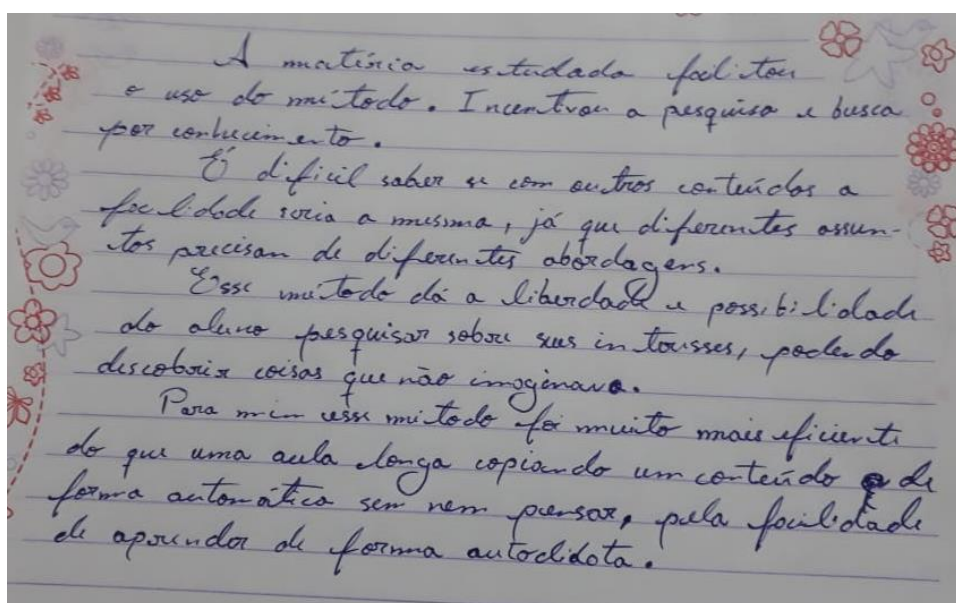 A matéria estudada facilitou
o uso do método. Incentivou a pesquisa e busca
por conhecimento.
É dificil saber se com outros conteúdos a
facilidade seria a mesma, já que diferentes assun-
tos precisam de diferentes abordagens.
Esse método dá a liberdade e possibilidade
do aluno pesquisar sobre seus interesses, podendo
descobrir coisas que não imaginava.
Para mim esse método foi muito mais eficiente
do que uma aula longa copiando um conteúdo de
forma automática sem nem pensar, pela facilidade
de aprender de forma autodidata.